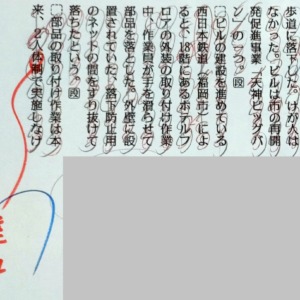 歩道に落下した。けが人は
なかった。ビルは市の再開
発促進事業「天神ビッグバ
ン」の一つ。段
ビルの建設を進めている
西日本鉄道(福岡市)によ
ると、18階にあるホテルフ
ロアの外装の取り付け作業
中、作業員が手を滑らせて
部品を落とした。外壁に設
置されていた落下防止用
のネットの間をすり抜けて
落ちたという。段
部品の取り付け作業は本
来、2人体制で実施しなけ